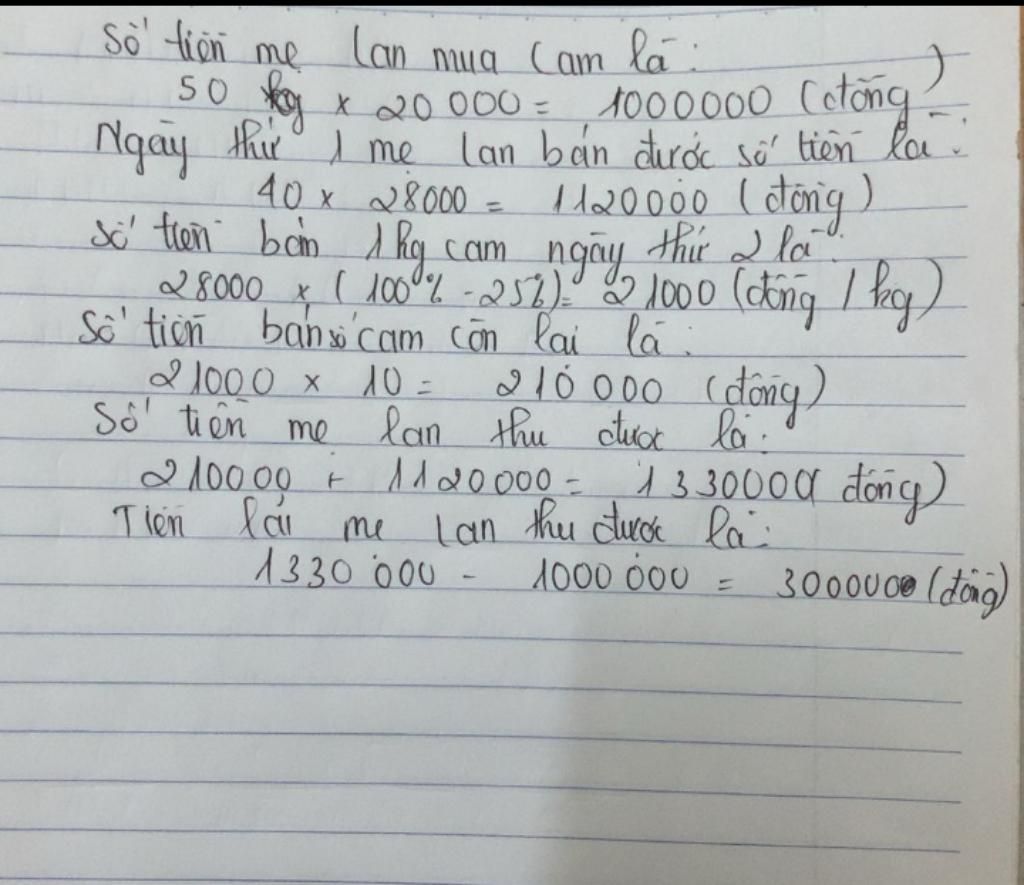 Số tiền mẹ Lan mua cam là:
50 kg × 20 000 = 1000000 (đồng)
Ngày thứ 1 mẹ Lan bán được số tiền là:
40 × 28000 = 1120000 (đồng)
Số tiền bán 1kg cam ngày thứ 2 là:
28000 × (100% - 25%) = 21000 (đồng / kg)
Số tiền bán số cam còn lại là:
21000 × 10 = 210 000 (đồng)
Số tiền mẹ lan thu được là:
210000 + 1120000 = 1330000 (đồng)
Tiền lãi mẹ Lan thu được là:
1330 000 - 1000 000 = 300000 (đồng)